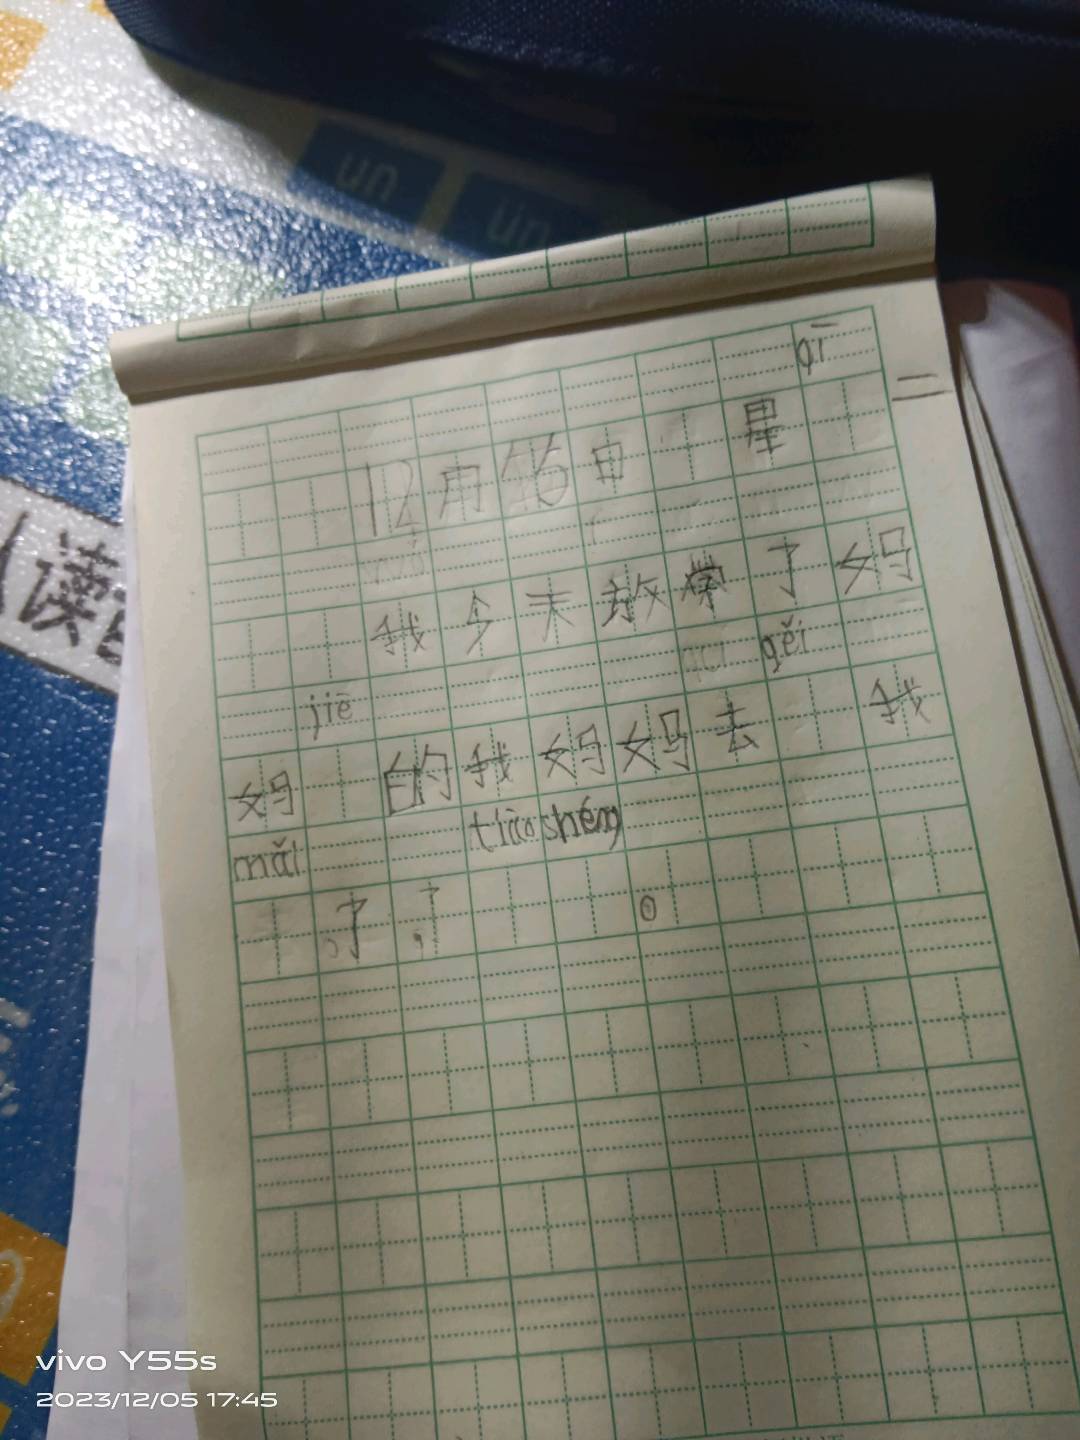 un
ün
读
qī
12月 日 星 二
我今天放学了妈
jiē gěi
妈 的我妈妈去 我
mǎi tiào shéng
了 。
vivo Y55s
2023/12/05 17:45